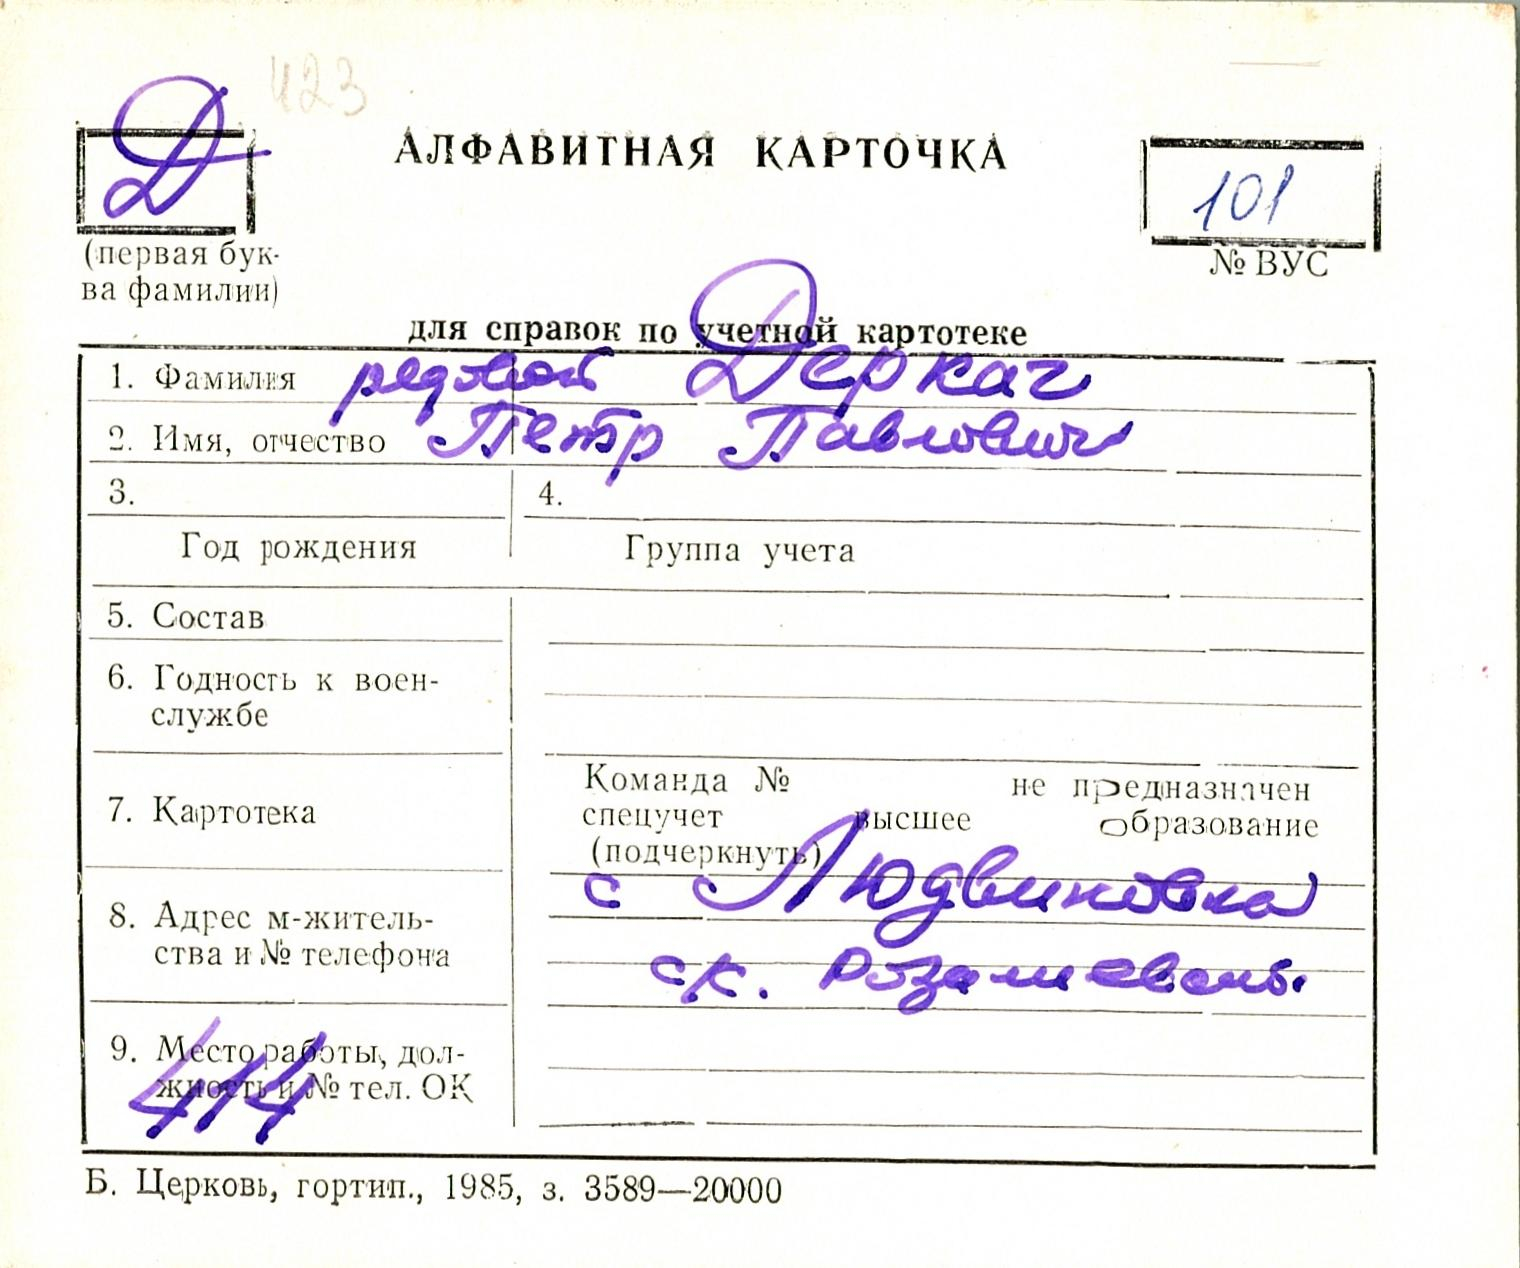 423
Д
АЛФАВИТНАЯ КАРТОЧКА
101
(первая бук-
ва фамилии)
№ ВУС
для справок по учетной картотеке
1. Фамилия рядовой Деркач
2. Имя, отчество Петр Павлович
3.
4.
Год рождения
Группа учета
5. Состав
6. Годность к воен-
службе
7. Картотека
Команда № не предназначен
спецучет высшее образование
(подчеркнуть)
8. Адрес м-житель-
ства и № телефона
с Людвиновка
ск.
9. Место работы, дол-
жность и № тел. ОК
414
Б. Церковь, гортип., 1985, з. 3589—20000